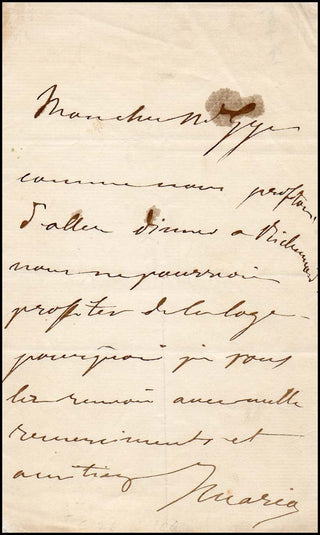 Mon cher
comme nous profitons
d'aller dinner a Richemond
nous ne pourrons
profiter de la loge
pourquoi je vous
la renvoie avec mille
remerciments et
amitiez
Maria